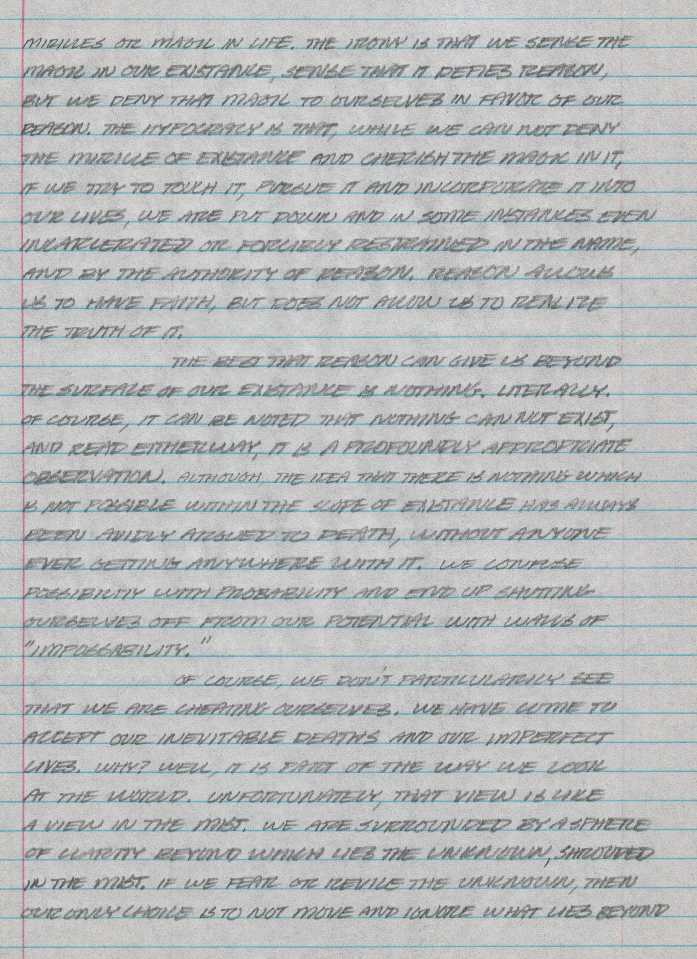 MIRICLES OR MAGIC IN LIFE. THE IRONY IS THAT WE SENSE THE
MAGIC IN OUR EXISTANCE, SENSE THAT IT DEFIES REASON,
BUT WE DENY THAT MAGIC TO OURSELVES IN FAVOR OF OUR
REASON. THE HYPOCRACY IS THAT, WHILE WE CAN NOT DENY
THE MIRICLE OF EXISTANCE AND CHERISH THE MAGIC IN IT,
IF WE TRY TO TOUCH IT, PURSUE IT AND INCORPORATE IT INTO
OUR LIVES, WE ARE PUT DOWN AND IN SOME INSTANCES EVEN
INCARCERATED OR FORCIBLY RESTRAINED IN THE NAME,
AND BY THE AUTHORITY OF REASON. REASON ALLOWS
US TO HAVE FAITH, BUT DOES NOT ALLOW US TO REALIZE
THE TRUTH OF IT.
THE BEST THAT REASON CAN GIVE US BEYOND
THE SURFACE OF OUR EXISTANCE IS NOTHING. LITERALLY.
OF COURSE, IT CAN BE NOTED THAT NOTHING CAN NOT EXIST,
AND READ EITHERWAY, IT IS A PROFOUNDLY APPROPRIATE
OBSERVATION. ALTHOUGH THE IDEA THAT THERE IS NOTHING WHICH
IS NOT POSSIBLE WITHIN THE SCOPE OF EXISTANCE HAS ALWAYS
BEEN AVIDLY ARGUED TO DEATH, WITHOUT ANYONE
EVER GETTING ANYWHERE WITH IT. WE CONFUSE
POSSIBILITY WITH PROBABILITY AND END UP SHUTTING
OURSELVES OFF FROM OUR POTENTIAL WITH WALLS OF
"IMPOSSABILITY."
OF COURSE, WE DON'T PARTICULARILY SEE
THAT WE ARE CHEATING OURSELVES. WE HAVE COME TO
ACCEPT OUR INEVITABLE DEATHS AND OUR IMPERFECT
LIVES. WHY? WELL, IT IS PART OF THE WAY WE LOOK
AT THE WORLD. UNFORTUNATELY, THAT VIEW IS LIKE
A VIEW IN THE MIST. WE ARE SURROUNDED BY A SPHERE
OF CLARITY BEYOND WHICH LIES THE UNKNOWN, SHROUDED
IN THE MIST. IF WE FEAR OR REVILE THE UNKNOWN, THEN
OUR ONLY CHOICE IS TO NOT MOVE AND IGNORE WHAT LIES BEYOND